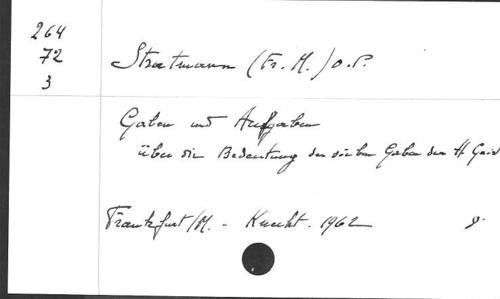 264
72
3
Stratmann (Fr. M.) O.P.
Gaben und Aufgaben
über die Bedeutung der sieben Gaben des H Geis
Frankfurt/M. - Knecht. 1962